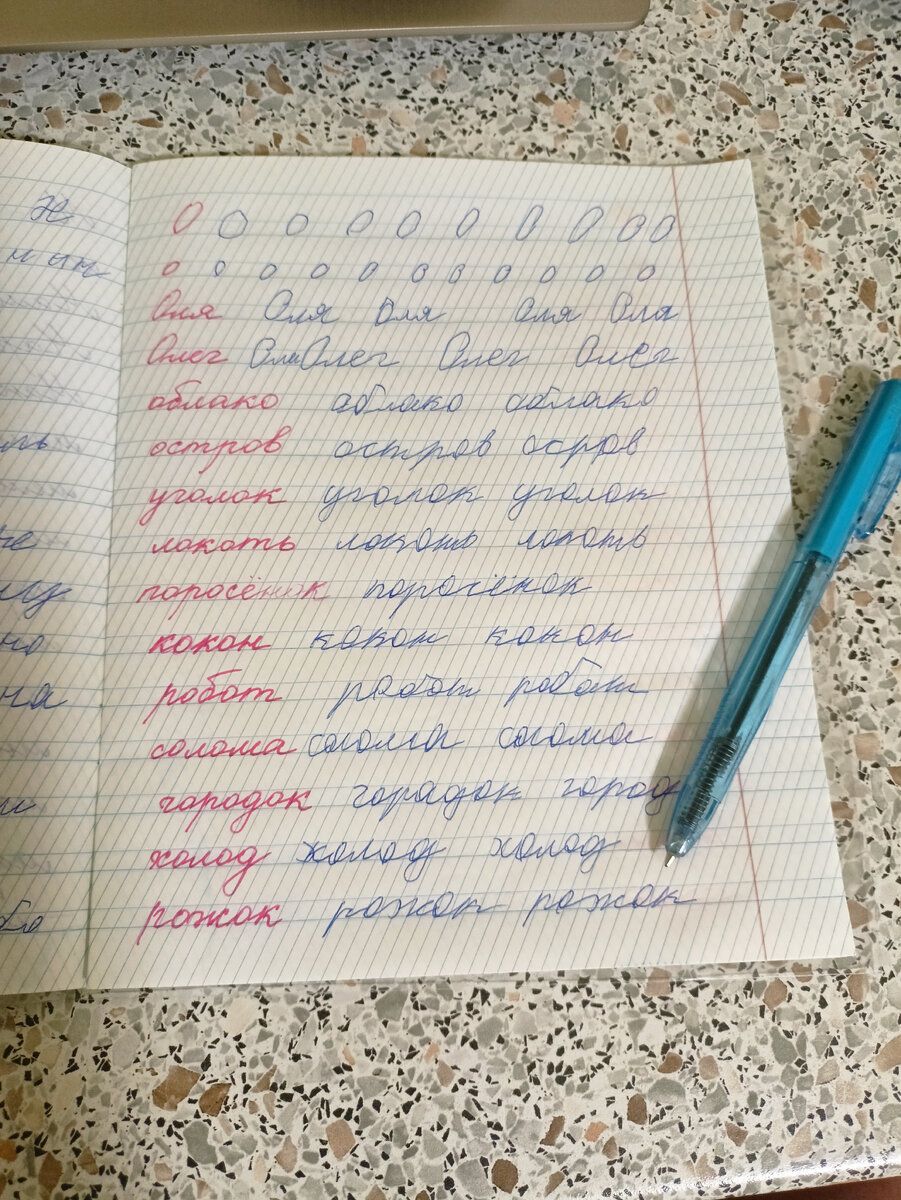 О О О О О О О О О О
о о о о о о о о о о о
Оля Оля Оля Оля Оля
Олег ОляОлег Олег Олег
облако облако облако
остров остров осррв
уголок уголок уголок
локоть локоть локоть
поросёнок поросёнок
кокон кокон кокон
робот робот робот
солома солома солома
городок горадок город
холод холод холод
рожок рожок рожок